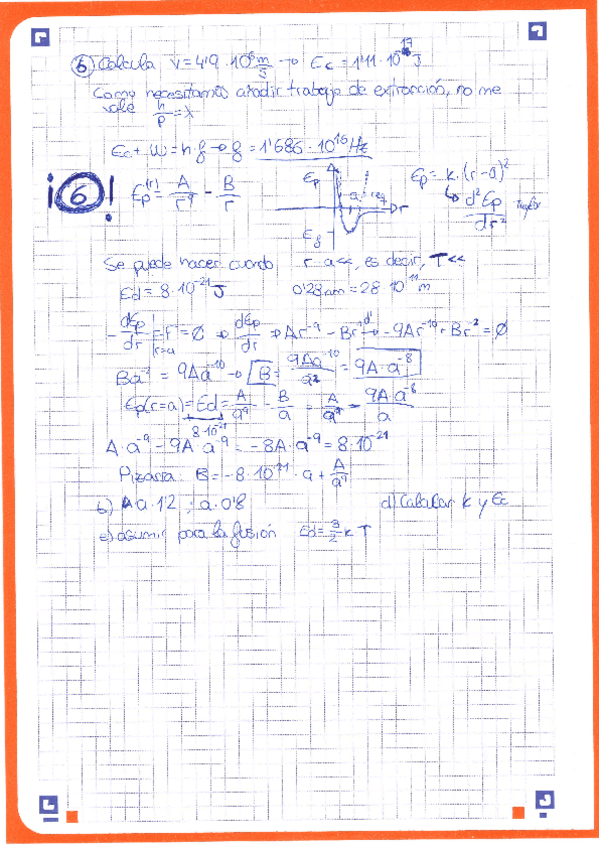 ⑤ Calcula v=4'9·10⁶ m/s → Ec = 1'11·10⁻¹⁷ J
Como necesitamos añadir trabajo de extracción, no me
vale h/p = λ
Ec + W = h·f → f = 1'686·10¹⁶ Hz
¡⑥! Ep(r) = A/r⁹ - B/r
Ep
r
Ep = k·(r-a)²
↳ d²Ep/dr² Taylor
Se puede hacer cuando r-a<<, es decir, T<<
Ed = 8·10⁻²¹ J 0'28nm = 28·10⁻¹¹ m
-dEp/dr |r=a = F = Ø → dEp/dr → Ar⁻⁹ - Br⁻¹ → -9Ar⁻¹⁰ + Br⁻² = Ø
Ba⁻² = 9Aa⁻¹⁰ → B = 9Aa⁻¹⁰/a⁻² = 9A·a⁻⁸
Ep(r=a) = Ed = A/a⁹ - B/a = A/a⁹ - 9A·a⁻⁸/a
8·10⁻²¹
A·a⁻⁹ - 9A·a⁻⁹ = -8A·a⁻⁹ = 8·10⁻²¹
Pizarra: B = -8·10⁻²¹·a + A/a⁹
b) a·1'2 ; a·0'8 d) Calcular k y Ec
e) asumir para la fusión Ed = 3/2 k T